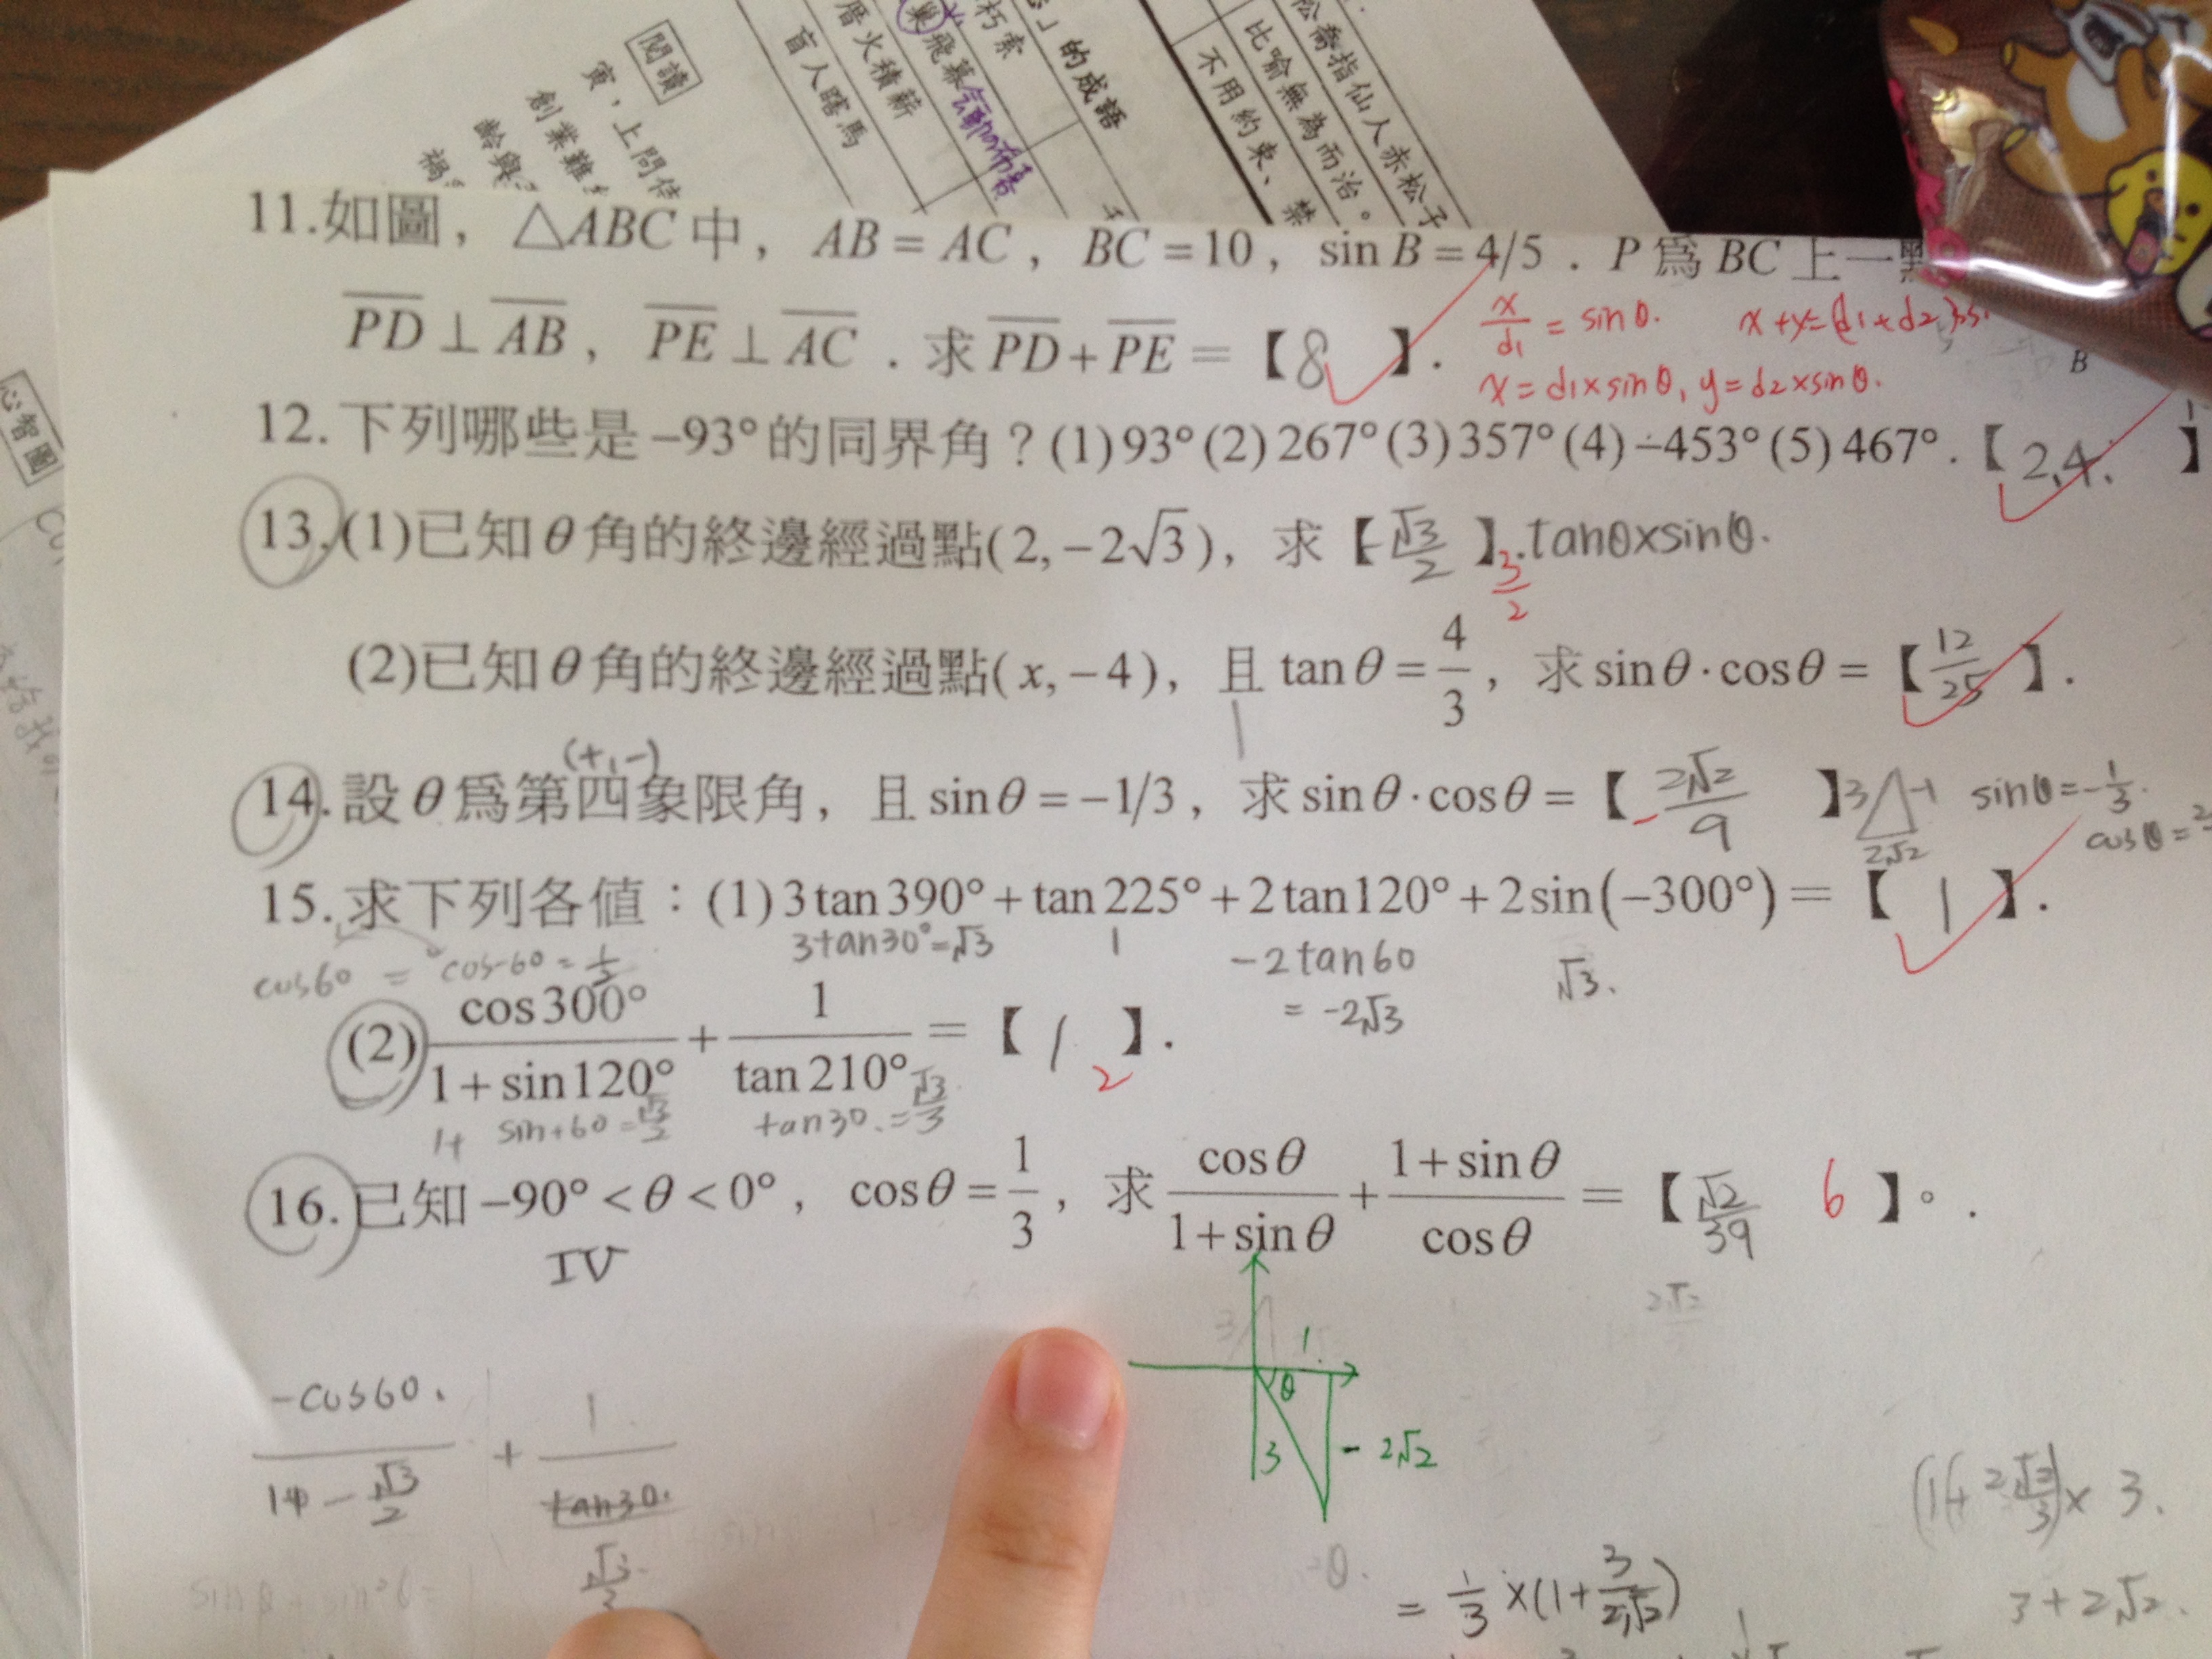 閱讀
寅，上問侍
創業難
齡與
禍
盲人瞎馬
厝火積薪
巢飛幕
朽索
」的成語
不用約束、禁
比喻無為而治。
松喬指仙人赤松子
心智圖
11.如圖，△ABC中，AB=AC，BC=10，sin B=4/5．P為BC上一
x/d1 = sinθ. x+y=(d1+d2)
PD⊥AB，PE⊥AC．求PD+PE=【8】．
x=d1×sinθ, y=d2×sinθ.
B
12.下列哪些是-93°的同界角？(1)93°(2)267°(3)357°(4)-453°(5)467°．【2,4.】
13.(1)已知θ角的終邊經過點(2,-2√3)，求【-√3/2】.tanθ×sinθ.
3/2
(2)已知θ角的終邊經過點(x,-4)，且tanθ=4/3，求sinθ·cosθ=【12/25】．
(+,-)
14.設θ為第四象限角，且sinθ=-1/3，求sinθ·cosθ=【-2√2/9】
3 -1 2√2 sinθ=-1/3.
cosθ=
15.求下列各值：(1)3tan390°+tan225°+2tan120°+2sin(-300°)=【1】．
3tan30°=√3 1 -2tan60 = -2√3 √3.
cos60 = cos-60 = 1/2
(2) cos300°/(1+sin120°) + 1/tan210° =【1】．
2
1+ sin+60=√3/2 tan30.=√3/3
16.已知-90°<θ<0°，cosθ=1/3，求 cosθ/(1+sinθ) + (1+sinθ)/cosθ =【√2/39 6】。．
IV
2√2
3
1.
θ
3
- 2√2
-cos60.
1
+
tan30.
(1+2√3/3)×3.
= 1/3×(1+3/2√2)
3+2√2.